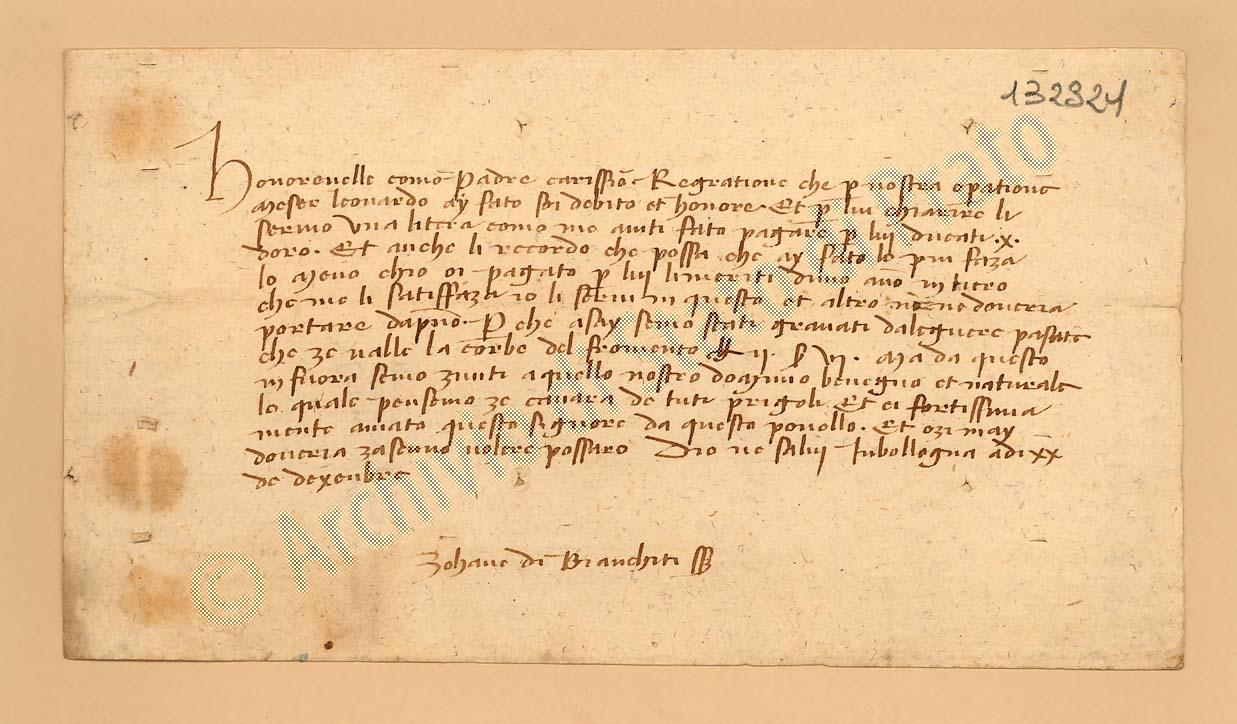 132921
Honorevelle como Padre carissimo Regratione che p vostra operatione
Meser leonardo ay fato soi debito et honore. Et p lui chiarire li
scrivo una litera como me aviti fato pagare p lui ducati .x.
doro. Et anche li recordo che possa che ay fato lo piu faza
lo meno chio oi pagato p lui limeriti duno ano in tiero
che me li satisffaza io li servi in questo et altro non ne doveria
portare dapno. P che asay semo stati gravati dale guere pasate
che ze valle la corbe del fromento ll ii. s vi. Ma da questo
in fuora semo zunti a quello nostro domino benegno et naturale
lo quale pensemo ze cavara de tuti prigoli Et ei fortissima
mente amato questo signore da questo povollo. Et ozi may
doveria zascuno volere possaro Dio ve salvi In bollogna adi xx
de dexenbre
Zohane di Bianchiti
© Archivio di Stato di Prato